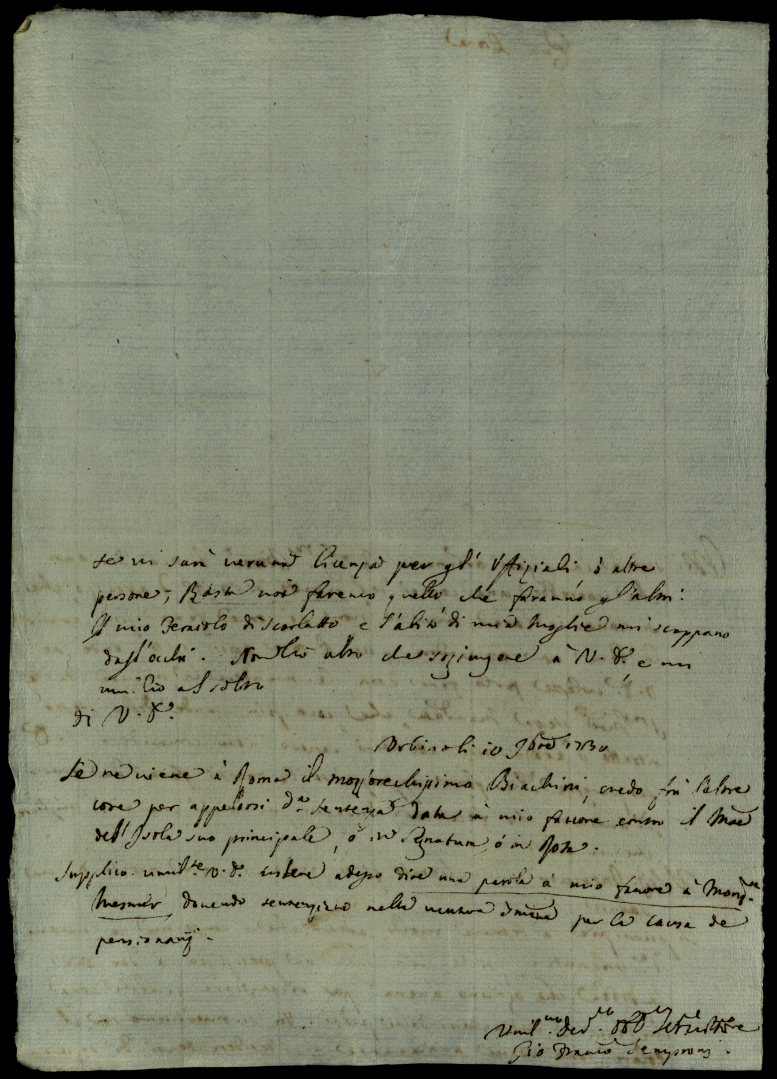 se vi sarà veruna licenza per gl' Uffiziali ò altre
persone; Basta noi faremo quello che faranno gl'altri.
Il mio Feraiolo di Scarlatto e l'abito di mia Moglie mi scappano
dagl'occhi. Non hò altro che soggiungere à V. S. e mi
umilio al solito
di V. S.
Urbino li 10 9bre 1730
Se ne viene à Roma il mozzorecchissimo Biachini, credo frà l'altre
cose per appellarsi dª sentenza data à mio favore contro il
dell'Isola suo principale, ò in Segnatura, ò in Rota.
Supplico umilte V. S. adesso dire una parola à mio favore à Monsre
dovendo nella ventura per la causa de
pensionarij.
Umilmo Devmo Obbmo Servitore
Gio Franco Sempronj.